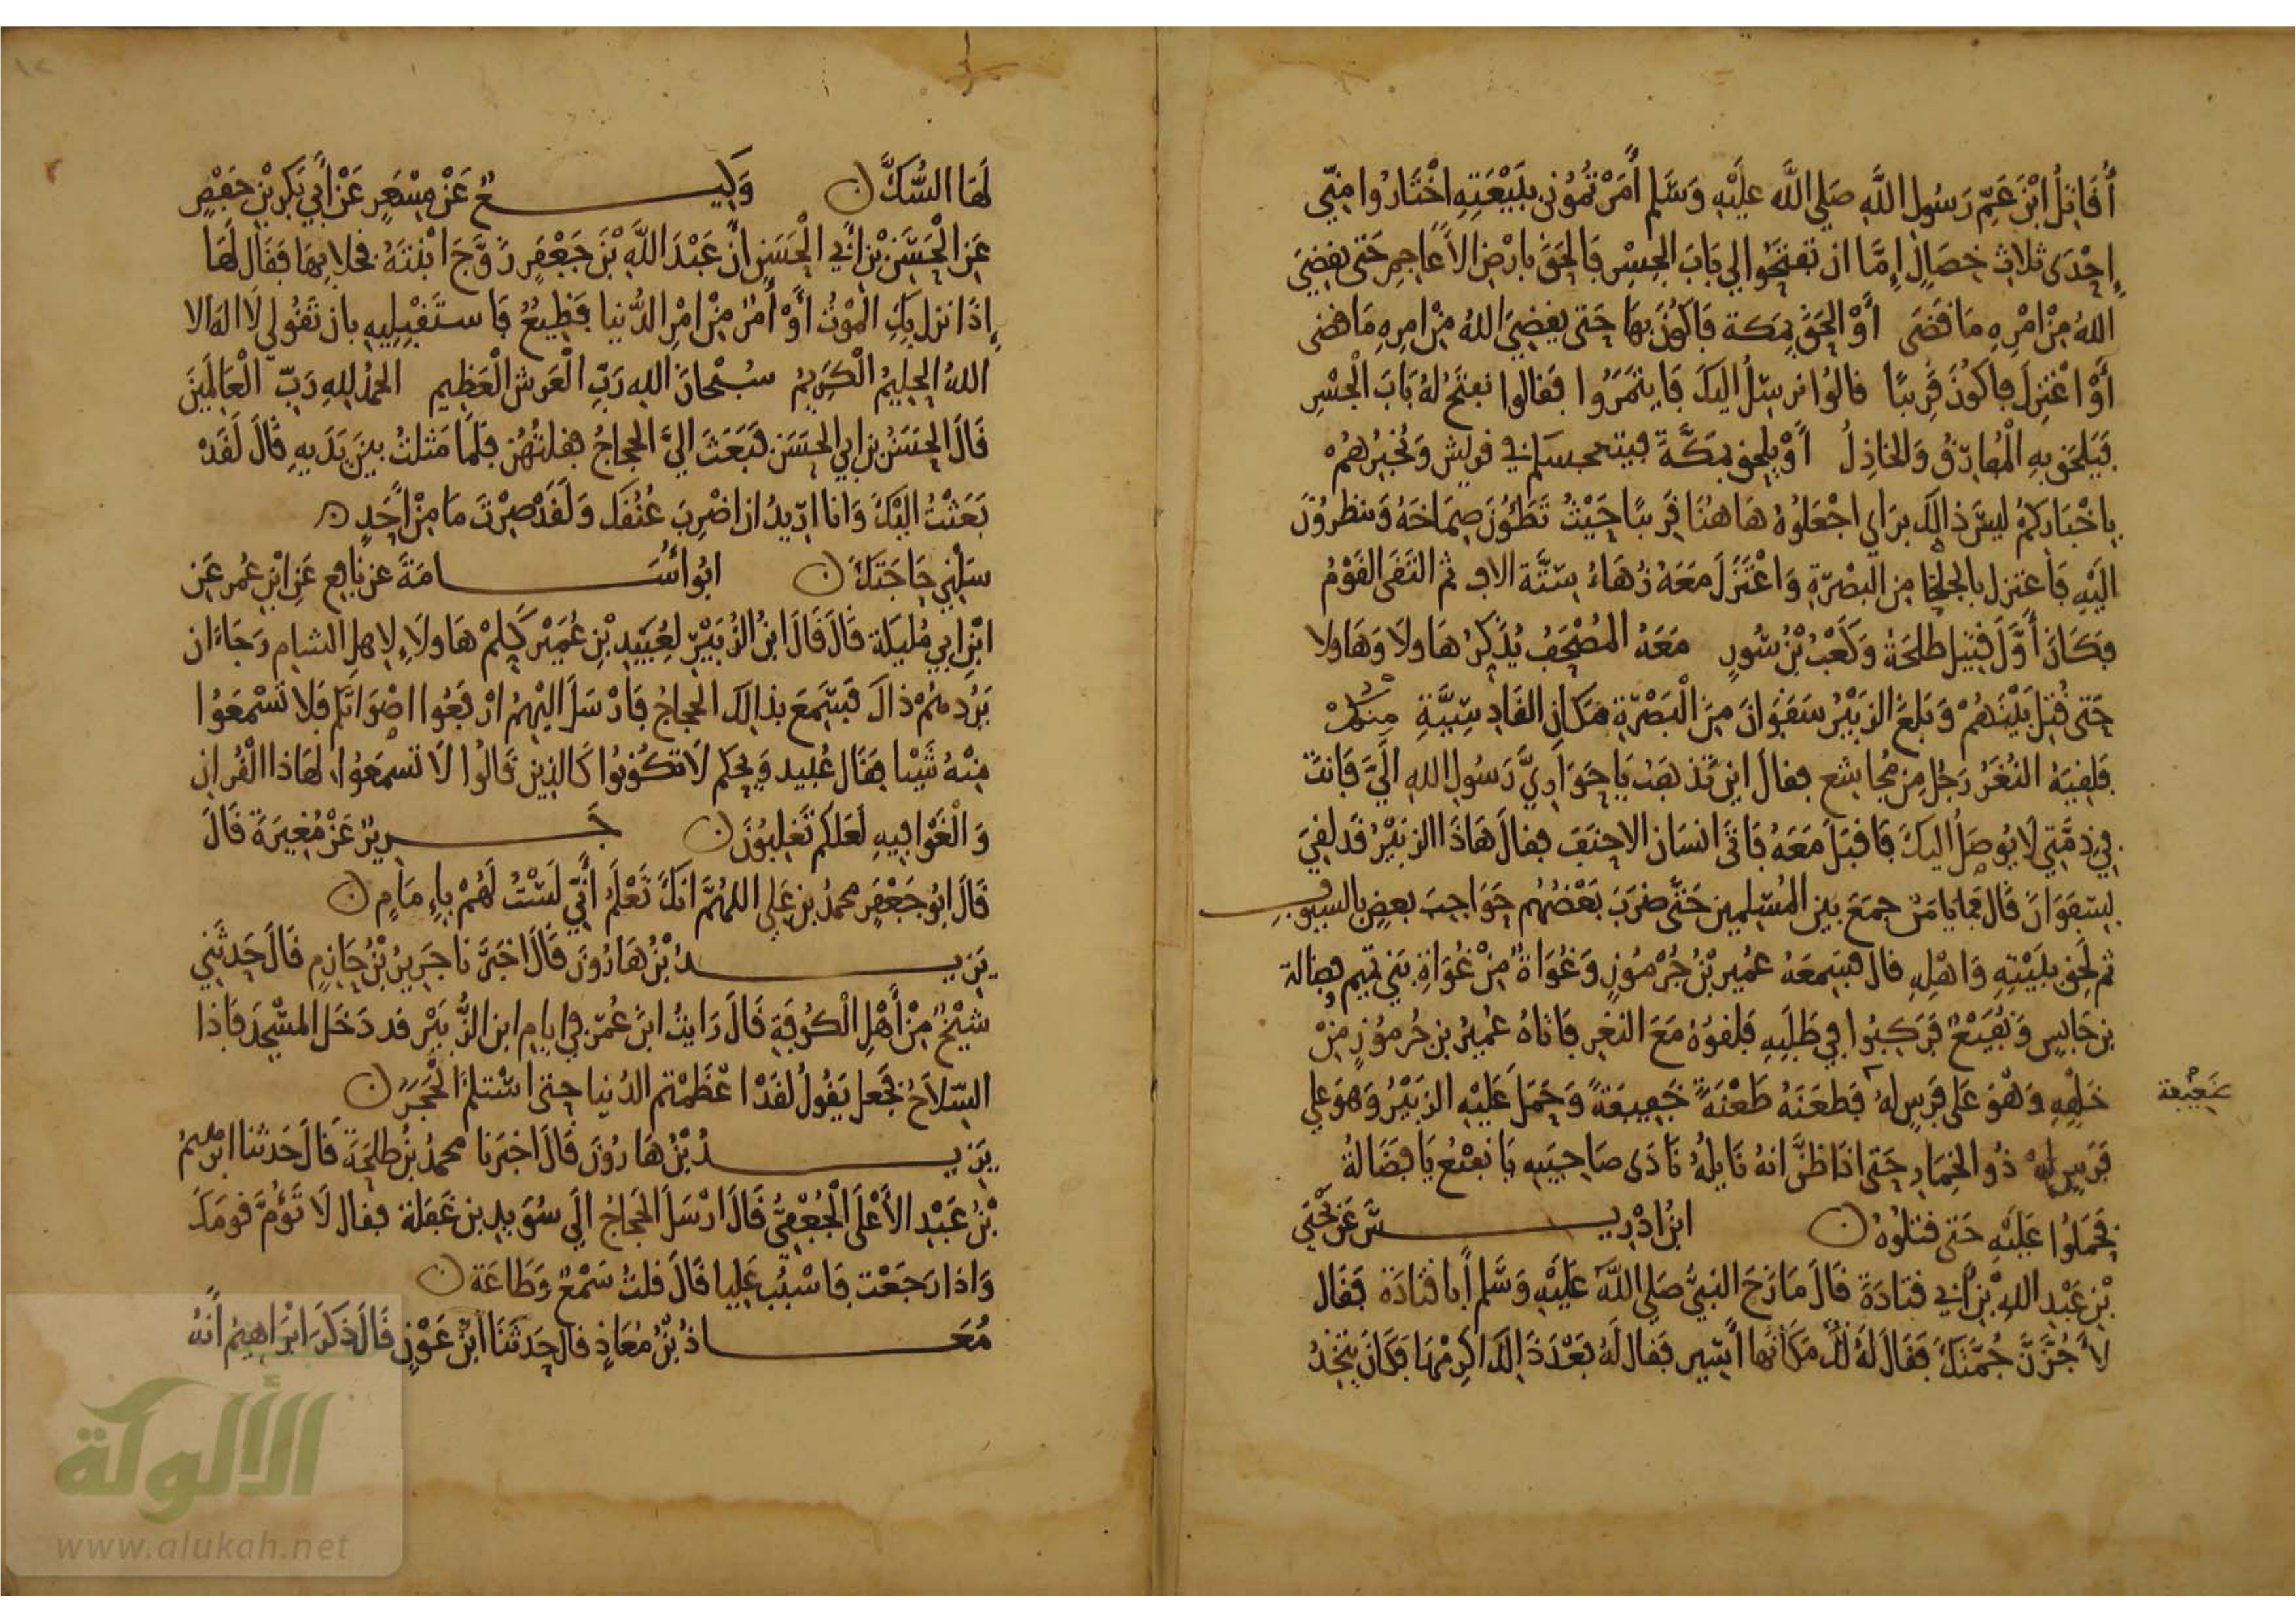 أُقَاتِلُ ابْنَ عَمِّ رَسُولِ اللَّهِ صَلى اللَّه عَلَيْهِ وَسَلم أَمَرْتُمُوني بِبَيْعَتِهِ اخْتَارُوا مِنِّي
إِحْدَى ثلاثِ خِصَالٍ إِمَّا ان تفتحوا لي بَابَ الجِسْرِ فَالْحَقَ بِارْضِ الاَعَاجِمِ حَتى يقضِيَ
اللهُ مِنْ امْرِهِ مَا قَضَى أَوْ الحَقَ بمَكة فَاكُونَ بهَا حَتى يقضِيَ اللهُ مِنْ امرِهِ مَا قضى
أَوْ اعْتزِلَ فاكُونَ قَرِيبًا قالوُا نرسِلُ اليكَ فَايتمَرُوا فقالوا نفتَحُ لهُ بَابَ الْجسْرِ
فَيَلحَقُ بِهِ الْمُفارِقُ وَالخَاذِلُ أَوْ يلحق بمَكَّةَ فيتحبسكم في قريش وَيُخبِرُهمُ
بِاخْبَارِكمُ ليسَ ذالِكَ بِرَاي اجْعَلوُهُ هَاهُنَا قَرِيبًا حَيْثُ تَطَئُونَ صِمَاخَهُ وَتنظرُونَ
الَيْهِ فَاعتزل بالجلحَا مِن البَصْرَةِ وَاعْتَزَلَ مَعَهُ زُهَاءُ سِتَّة الاف ثم التَقَى القَوْمُ
فكَانَ أَوَّلَ قتِيل طلحَةُ وَكَعْبُ بْنُ سُورٍ مَعَهُ المُصْحَفُ يُذَكِّرُ هَاولاَ وَهَاولا
حَتى قُتِلَ بَيْنَهُمْ وَبَلغَ الزبَيْرُ سَفَوَانَ مِنَ الْبَصْرَةِ مَكانِ القَادِسِيَّةِ مِنكمْ
فَلقِيَهُ النُّعَرُ رَجُل مِن مُجاشِع فقالَ اينَ تَذهَبُ يَا حَوَارِيَّ رَسُولِ اللهِ الَيَّ فَانتَ
في ذِمَّتِي لاَ يُوصَلُ اليكَ فَاقبَلَ مَعَهُ فَاتَى انسَان الاحنَفَ فقالَ هَاذَا الزبَيْرُ قَد لقِيَ
بسَفَوَانَ قَال فمَا يامَنُ جمَعَ بين المُسْلمين حَتَّى ضرَبَ بَعْضُهُم حَوَاجِبَ بعضٍ بالسيوفِ
ثم لحِقَ ببَيْتِهِ وَاهْلِهِ قال فسَمعَهُ عُمير بْنُ جُرْمُوزٍ وَغُوَاةٌ مِنْ غُوَاةِ بَني تميم وفضالة
بن حَابِسٍ وَنُفَيْعٌ فَرَكِبُوا في طَلَبِهِ فَلقوُهُ مَعَ النغَرِ فَاتاهُ عُمَيْرُ بن جُرمُوزٍ مِنْ
خَلفِهِ وَهْوَ عَلى فَرَسٍ لهُ فَطَعَنَهُ طَعْنَةً خَفِيفَةً وَحَمَلَ عَلَيْهِ الزبَيْرُ وَهوَ على
ضَعِيْفة
فَرَسٍ لهُ يُقَالُ لهُ ذُو الخِمَارِ حَتى اذَا ظنَّ انهُ قَاتِلُهُ نَادَى صَاحِبَيهِ يَا نفَيْعُ يَا فضَالةُ
فَحَمَلُوا عَلَيْهِ حَتى قتلُوُهُ ابْنُ ادْرِيسَ عَنْ يَحْيَى
بْنِ عَبْدِ اللهِ بْنِ أَبي قتادَةَ قَالَ مَازَحَ النبيُّ صَلى اللَّهُ عَلَيْهِ وَسَلم أَبا قتَادَة فَقَال
لأَجُزَّنَّ جُمَّتَكَ فَقَالَ لَهُ لكَ مَكَانهَا أَسِير فَقال لَهُ بَعْدَ ذَالِكَ اكرِمْهَا فكَانَ يتخِذُ
لَهَا السُّكَّ وَكِيعٌ عَنْ مِسْعَرٍ عَنْ أَبي بَكرِ بْنِ حَفْصٍ
عَنِ الْحَسَنِ بْنِ أَبي الْحَسَنِ انَّ عَبْدَ اللَّهِ بْنَ جَعْفَرٍ زَوَّجَ ابْنتَهُ فخلا بهَا فَقال لَهَا
إِذَا نزل بِكِ الْمَوْتُ أَوْ أَمْرٌ مِنْ امْرِ الدُّنيا فَظِيعٌ فَاستَقْبِلِيهِ بان تَقُولي لاَ اله الا
اللهُ الحليمُ الْكَرِيمُ سُبْحَانَ اللهِ رَبِّ الْعَرش الْعَظِيم الحمْدُ للهِ رَبِّ الْعَالَمينَ
قَالَ الحسَنُ بن ابي الحَسَن فَبَعَثَ اليَّ الحجاجُ فقلتُهُن فلَما مَثلتُ بينَ يَدَيهِ قَالَ لَقَدْ
بَعَثْتُ الَيْكَ وَانا اريدُ ان اضْرِبَ عُنُقَكَ وَلَقَدْ صِرْتَ مَا مِنْ أَحَدٍ
سَلْني حَاجَتَكَ ابُو أُسَامَةَ عن نَافِع عَنِ ابْنِ عُمر عَن
ابْنِ ابي مُليَكة قَالَ قَالَ ابنُ الزُّبَيْرِ لعُبَيْدِ بْنِ عُمَيْر كَلِّمْ هَاولاَءِ لاِهلِ الشامِ رَجَاءَ ان
يَرُدهُمْ ذَاكَ فَسَمعَ بذالكَ الحجاجُ فَارْسَلَ اليْهِمُ ارْفَعُوا اصْوَاتَكم فَلا تَسْمَعُوا
مِنْهُ شَيْئا فقَال عُبيد وَيحَكم لاَ تكُونوُا كَالذِين قَالُوا لاَ تَسمَعُوا لهَاذا القُرانِ
وَالْغَوا فِيهِ لَعَلكم تَغلِبُونَ جَرِيرٌ عَنْ مُغِيرَةَ قَالَ
قَالَ ابُو جَعْفَرٍ محمدُ بن عَلي اللهُمَّ انكَ تَعْلَمُ أَنِّي لَسْتُ لَهُمْ بِإِمَامٍ
يَزِيدُ بْنُ هَارُونَ قَالَ اخبَرَنَا جَرِيرُ بْنُ حَازِمٍ قَالَ حَدثَني
شيْخٌ مِنْ أَهْلِ الْكُوفَةِ قَالَ رَايتُ ابنَ عُمَرَ في ايامِ ابن الزُّبَيْر قد دَخَلَ المسْجِدَ فَاذا
السِّلاَحُ فجَعل يَقُولُ لقَدْ اعْظَمْتم الدُنيا حتى استلمَ الْحَجَرَ
يَزِيدُ بْنُ هَارُونَ قَالَ اخبَرنا محمدُ بْنُ طلحَةَ قَالَ حَدثنا ابْرهيمُ
بْنُ عَبْدِ الأَعْلى الْجُعْفِيُّ قَالَ ارْسَلَ الحَجاجُ الى سُوَيدِ بن غَفَلة فقال لاَ تَؤُمَّ قومَكَ
وَاذا رَجَعْت فَاسْبُبْ عَلِيا قَالَ قلتُ سَمْعٌ وَطَاعَة
مُعَاذُ بْنُ مُعَاذٍ قال حَدثَنَا ابْنُ عَوْنٍ قَالَ ذَكَرَ ابْرَاهِيمُ أَنهُ
الألوكة
www.alukah.net